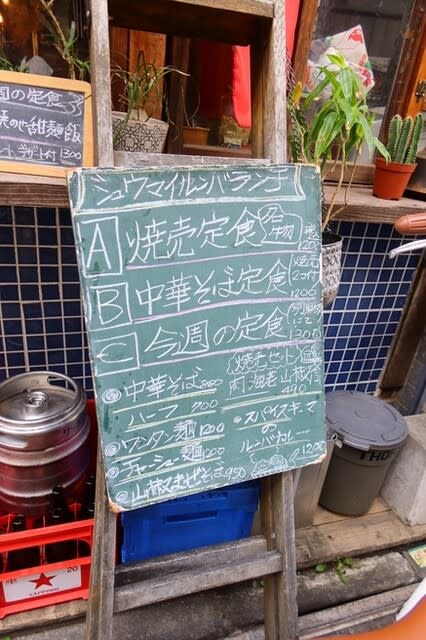 週の定食
焼のせ甜麺飯
デザート付 1300
シュウマイルンバランチ
A 焼売定食 名物 1200
B 中華そば定食 焼売 2コ付 1200
C 今週の定食 1300
焼売セット 一皿
肉 海老 山椒 だ 480
◎中華そば 800
ハーフ 700
◎ワンタン麺 1200
◎チャーシュー麺 1200
◎山椒まぜそば 950
・スパイスキーマ
の
ルンバカレー
1200
20
SAPPORO